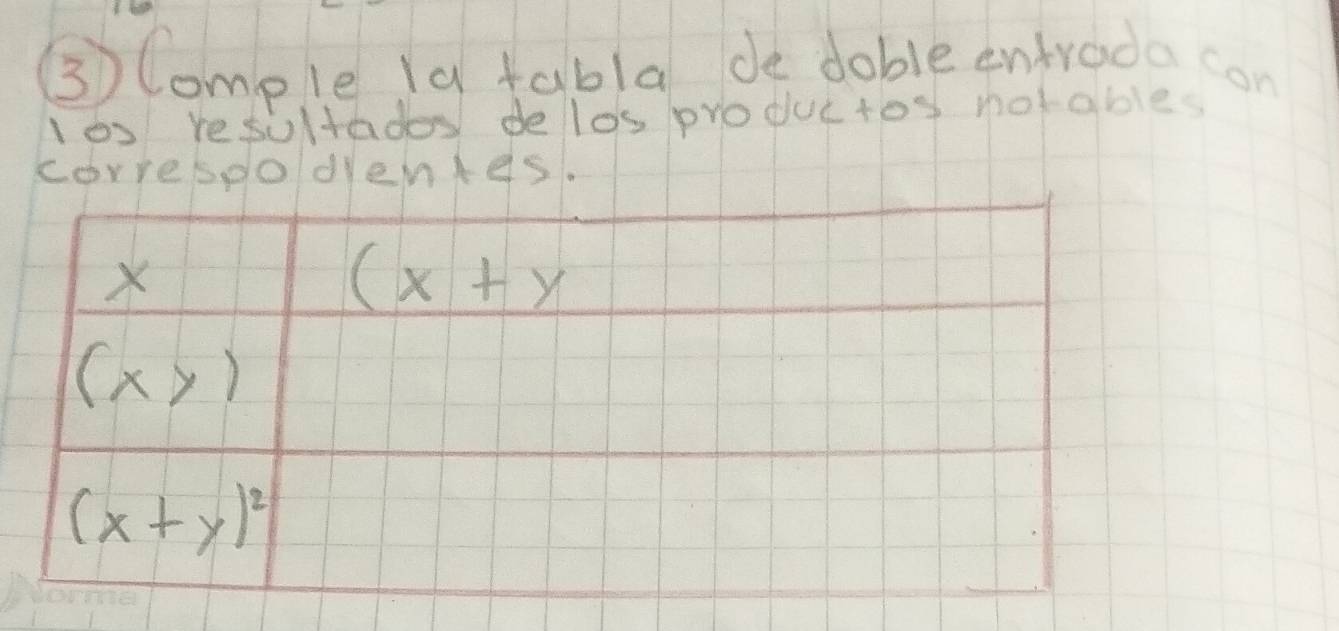 ③ Comple la tabla de doble entrada con
los resultados de los productos notables
correspodientes.
x (x + y
(x y)
(x + y)²
Norma